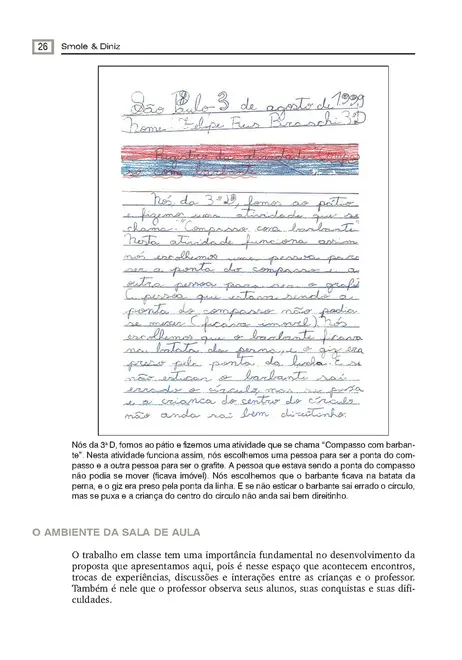 26 Smole & Diniz
São Paulo 3 de agosto de 1999
Nome: Felipe 3ªD
Registro da atividade
com barbante
Nós da 3ªD, fomos ao pátio
e fizemos uma atividade que se
chama: "Compasso com barbante".
Nesta atividade funciona assim
nós escolhemos uma pessoa para
ser a ponta do compasso e a
outra pessoa para ser o grafi
(A pessoa que estava sendo a
ponta do compasso não podia
se mover (ficava imóvel). Nós
escolhemos que o barbante ficava
na batata da perna, e o giz era
preso pela ponta da linha. E se
não esticar o barbante sai
errado o círculo, mas se puxa
e a criança do centro do círculo
não anda sai bem direitinho.
Nós da 3ª D, fomos ao pátio e fizemos uma atividade que se chama "Compasso com barban-
te". Nesta atividade funciona assim, nós escolhemos uma pessoa para ser a ponta do com-
passo e a outra pessoa para ser o grafite. A pessoa que estava sendo a ponta do compasso
não podia se mover (ficava imóvel). Nós escolhemos que o barbante ficava na batata da
perna, e o giz era preso pela ponta da linha. E se não esticar o barbante sai errado o círculo,
mas se puxa e a criança do centro do circulo não anda sai bem direitinho.
O AMBIENTE DA SALA DE AULA
O trabalho em classe tem uma importância fundamental no desenvolvimento da
proposta que apresentamos aqui, pois é nesse espaço que acontecem encontros,
trocas de experiências, discussões e interações entre as crianças e o professor.
Também é nele que o professor observa seus alunos, suas conquistas e suas difi-
culdades.